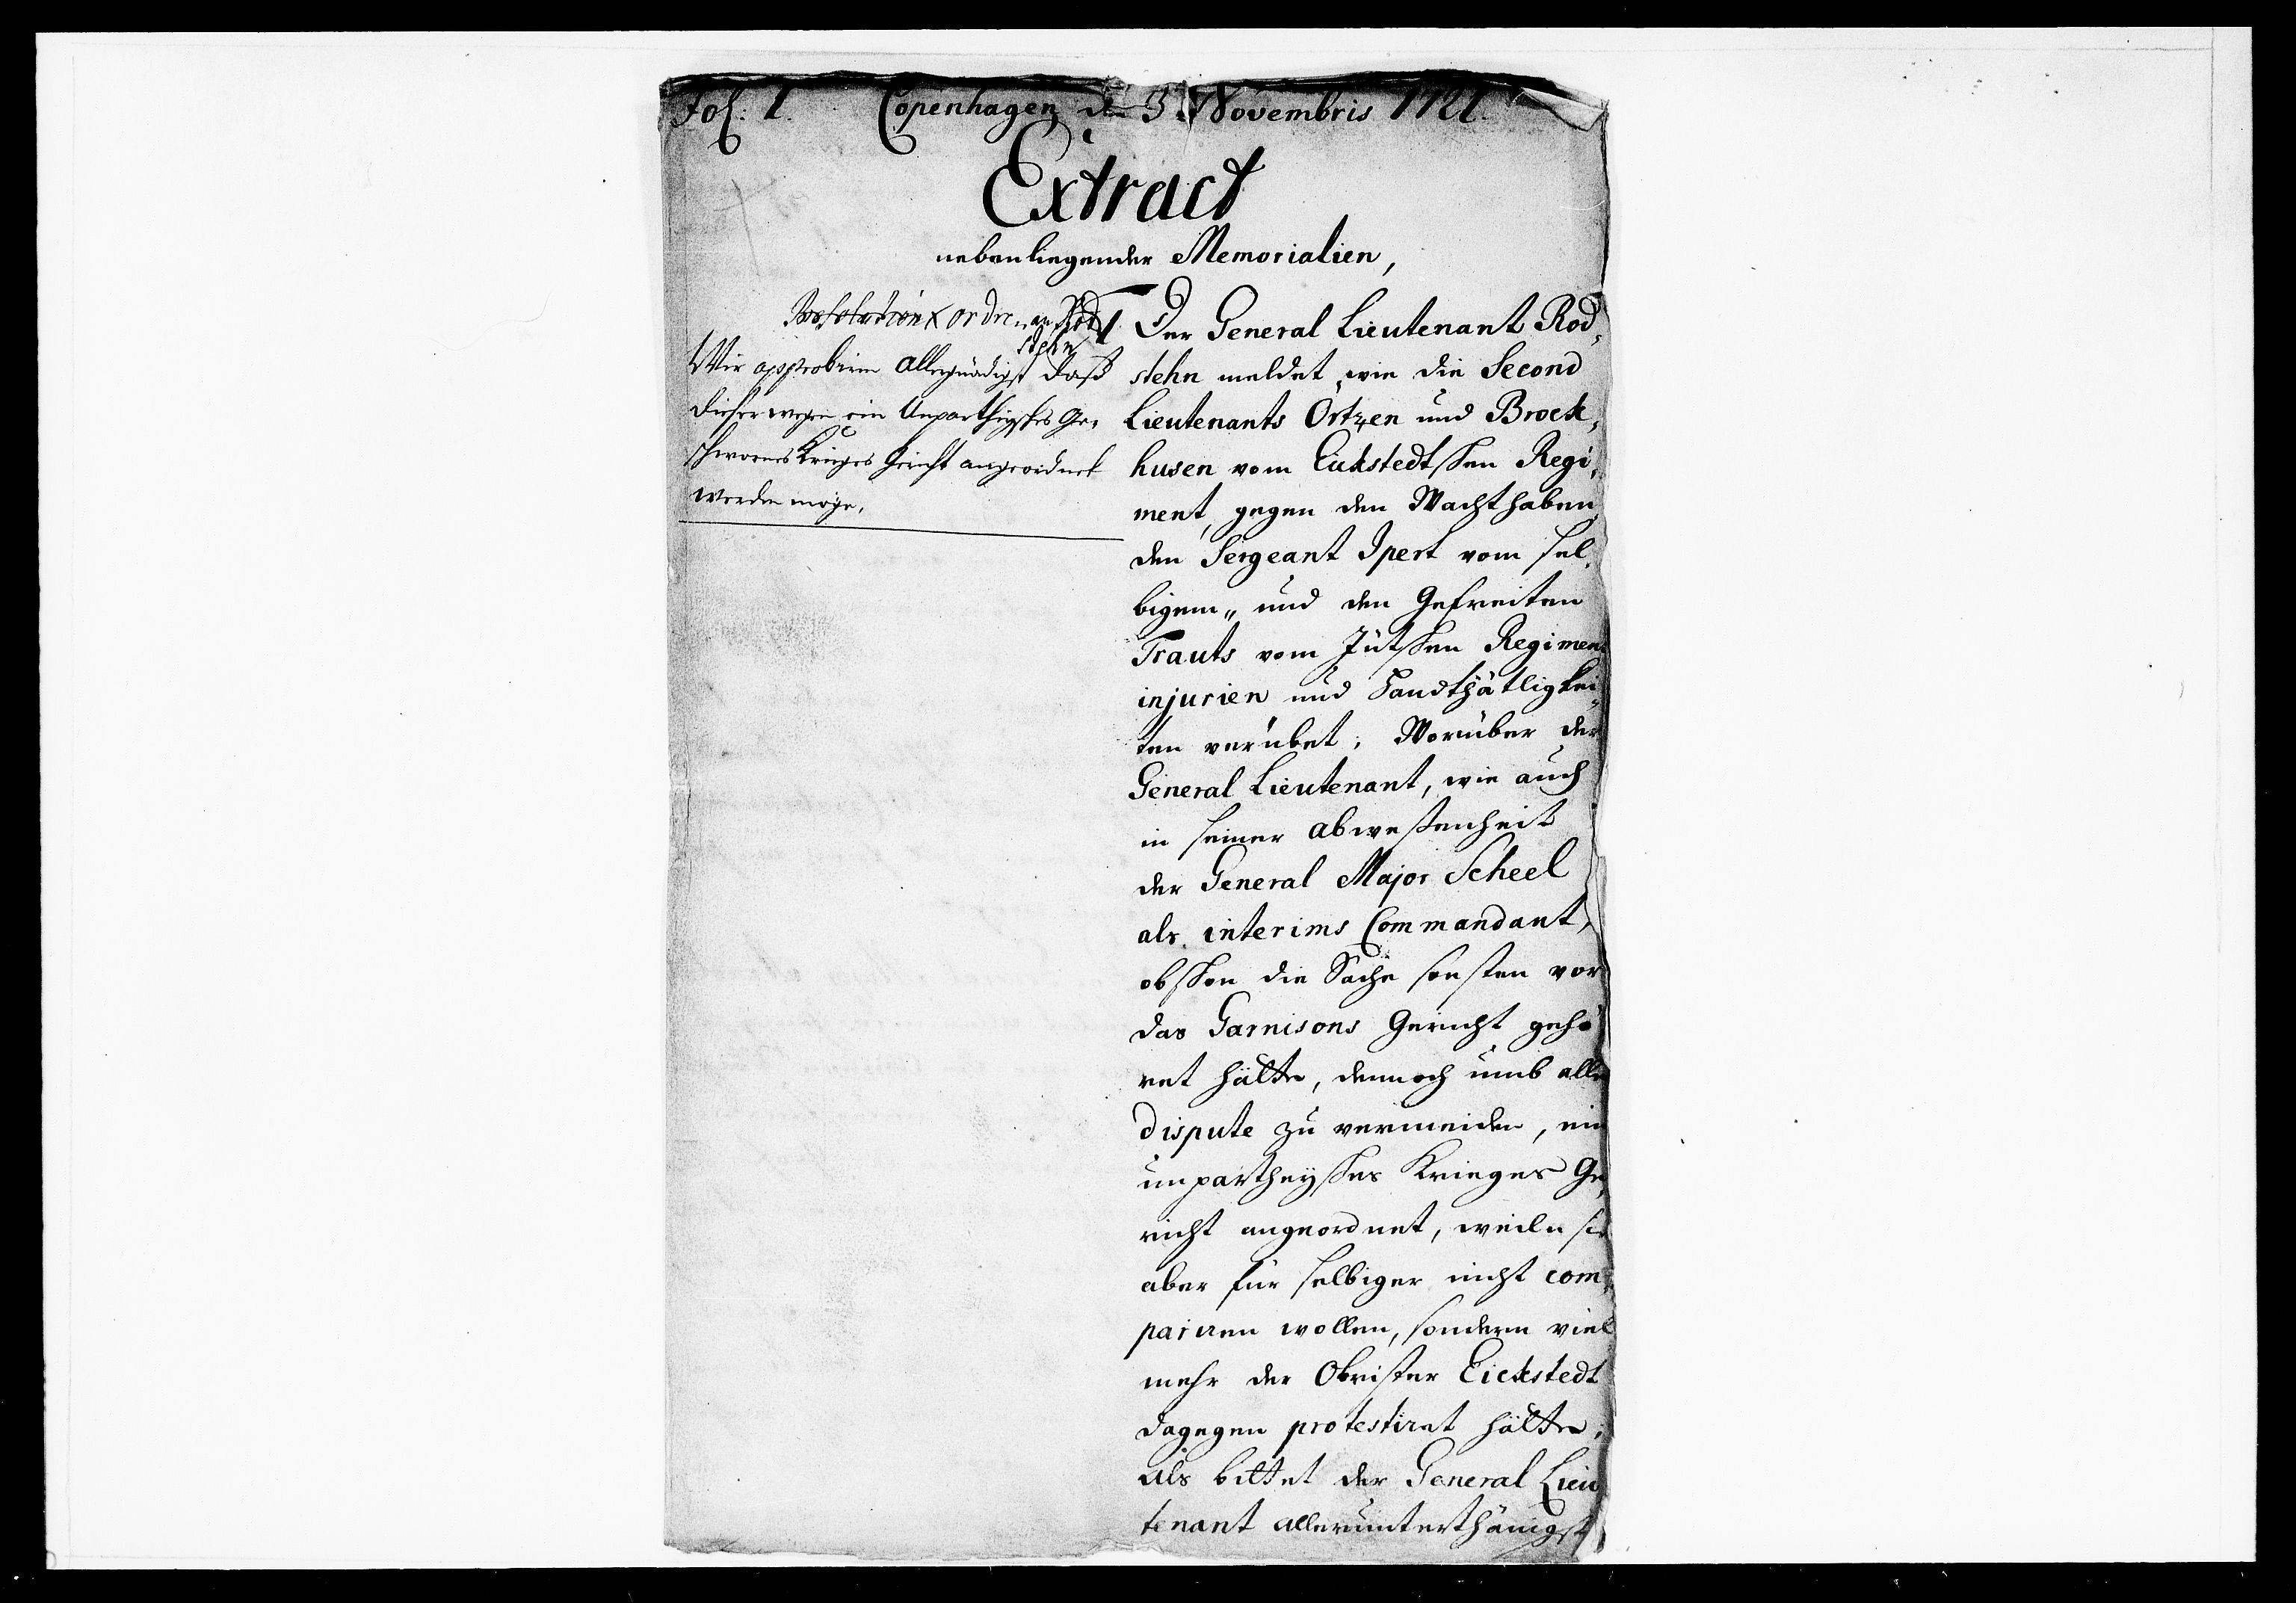 Fol: 1. Copenhagen d 3 Novembris 1721.
Extract
nebenliegender Memorialien,
Resolution x ordre an Rod
stehn
Wir approbiren allergnädigst daß
dieserwegen ein Unpartheysches Ge,
schwornes Krieges Gericht angeordnet
werden möge.
1 Der General Lieutenant Rod,
stehn meldet, wie die Second
Lieutenants Örtzen und Brock,
husen vom Eickstedtschen Regi,
ment, gegen den Wachthaben,
den Sergeant Ipert vom sel,
bigem, und den Gefreiten
Trauts vom Jütschen Regiment
injurien und Handthätligkei,
ten verübet; Worüber der
General Lieutenant, wie auch
in seiner abwesenheit
der General Major Scheel
als interims Commandant,
obschon die Sache sonsten vor
das Garnisons Gericht gehö
ret hätte, dennoch umb alle
dispute zu vermeiden, ein
unpartheysches Krieges Ge,
richt angeordnet, weiln sie
aber für selbiger nicht com,
pariren wollen, sondern viel
mehr der Obrister Eickstedt
dagegen protestiret hätte;
Als bittet der General Lieu
tenant allerunterthänigst,